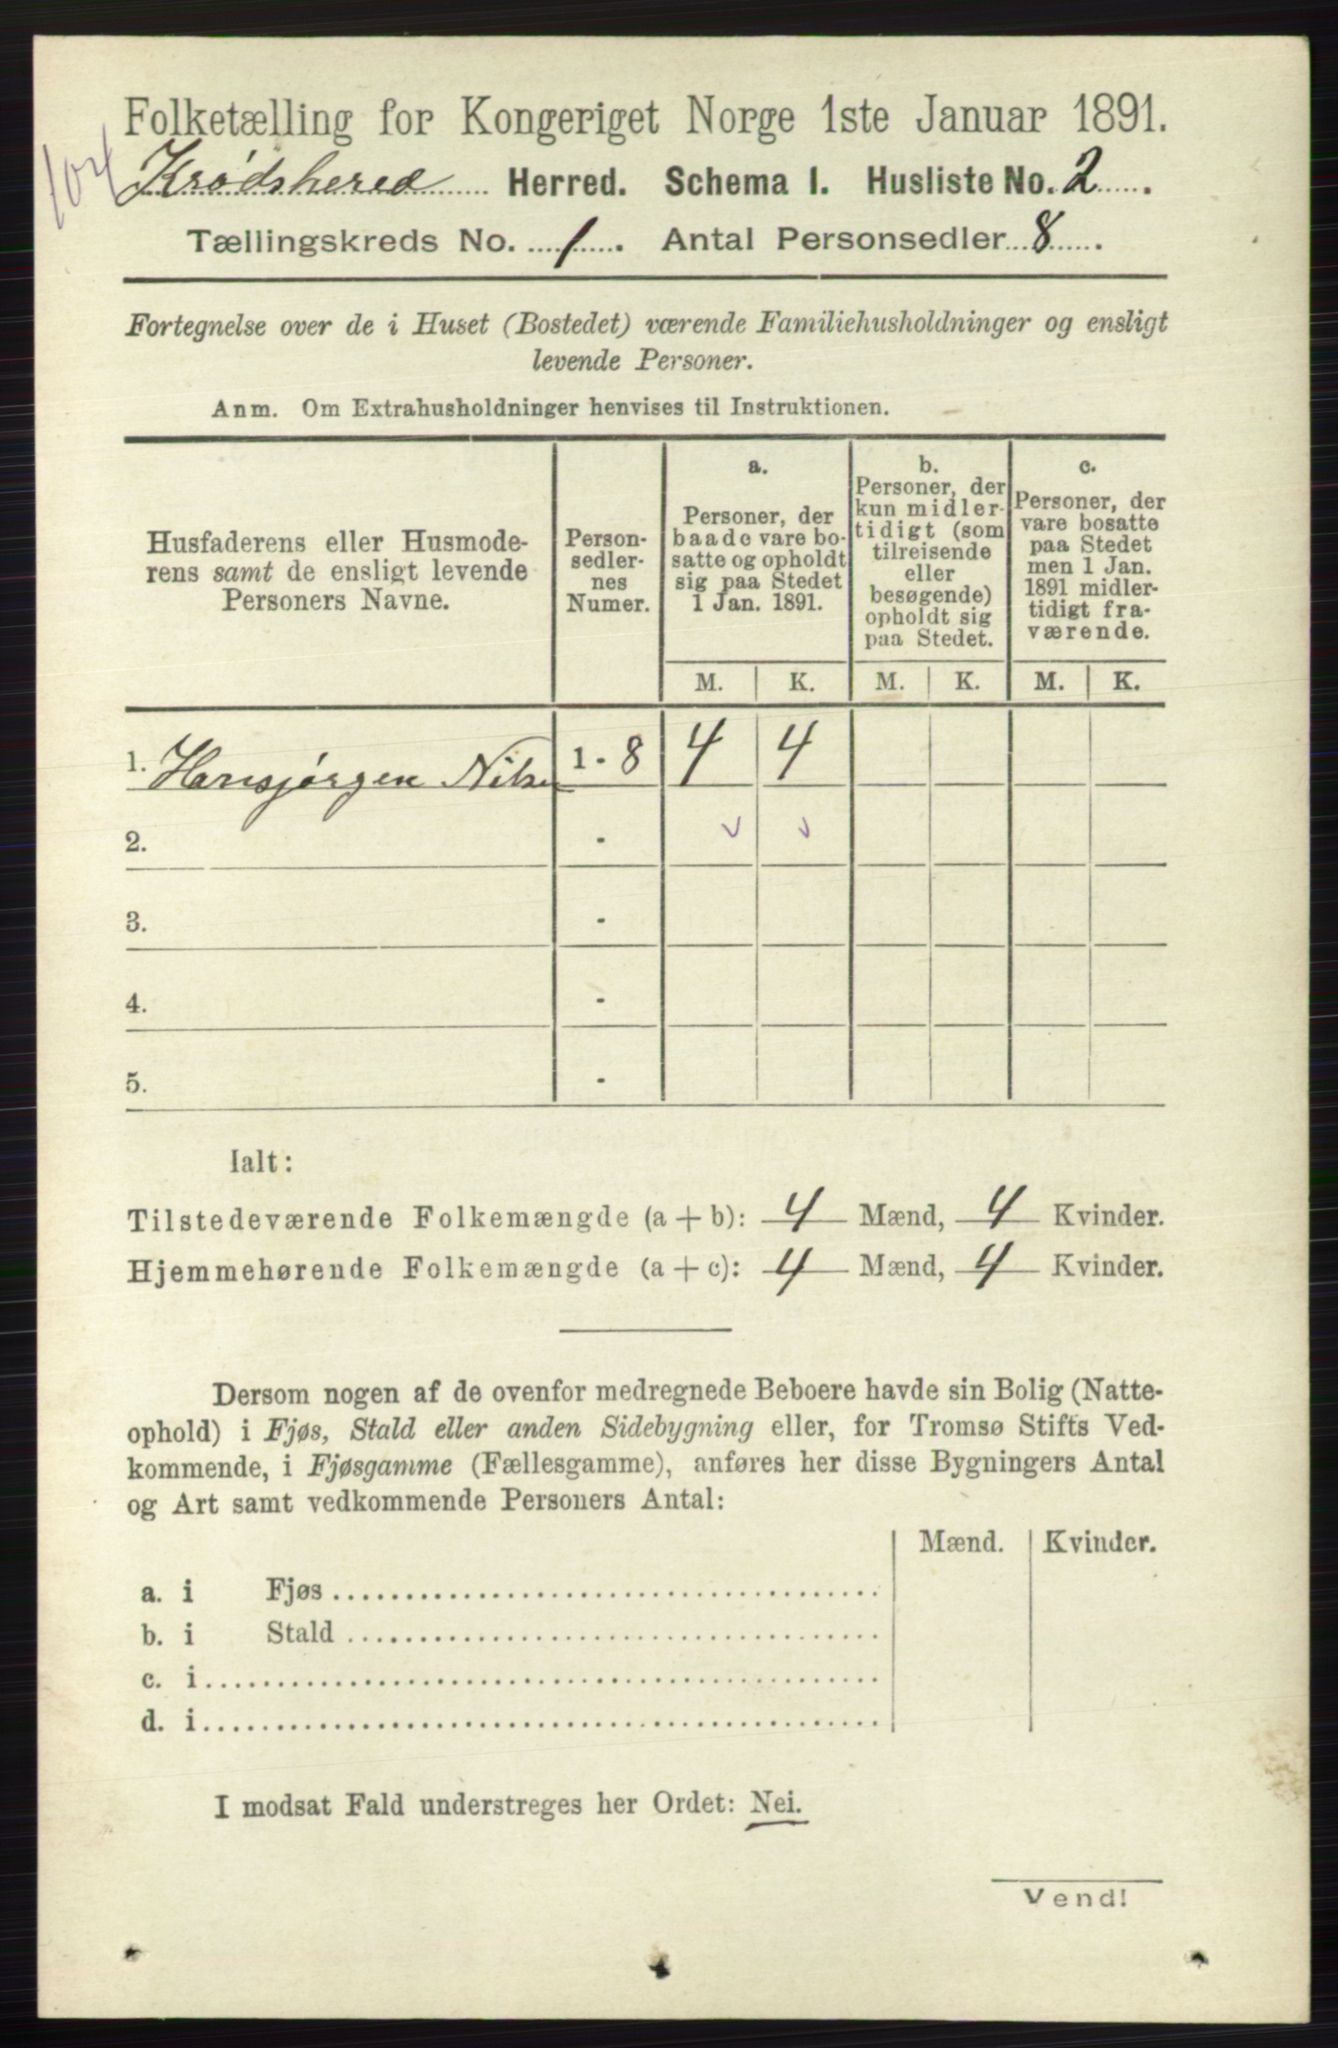 Folketælling for Kongeriget Norge 1ste Januar 1891.
104
Krødshered Herred. Schema I. Husliste No. 2.
Tællingskreds No. 1. Antal Personsedler 8.
Fortegnelse over de i Huset (Bostedet) værende Familiehusholdninger og ensligt
levende Personer.
Anm. Om Extrahusholdninger henvises til Instruktionen.
Husfaderens eller Husmode-
rens samt de ensligt levende
Personers Navne.
Person-
sedler-
nes
Numer.
a.
Personer, der
baade vare bo-
satte og opholdt
sig paa Stedet
1 Jan. 1891.
b.
Personer, der
kun midler-
tidigt (som
tilreisende
eller
besøgende)
opholdt sig
paa Stedet.
c.
Personer, der
vare bosatte
paa Stedet
men 1 Jan.
1891 midler-
tidigt fra-
værende.
M. K. M. K. M. K.
1. Hansjørgen Nilsen 1 - 8 4 4
2. -
3. -
4. -
5. -
Ialt:
Tilstedeværende Folkemængde (a + b): 4 Mænd, 4 Kvinder.
Hjemmehørende Folkemængde (a + c): 4 Mænd, 4 Kvinder.
Dersom nogen af de ovenfor medregnede Beboere havde sin Bolig (Natte-
ophold) i Fjøs, Stald eller anden Sidebygning eller, for Tromsø Stifts Ved-
kommende, i Fjøsgamme (Fællesgamme), anføres her disse Bygningers Antal
og Art samt vedkommende Personers Antal:
Mænd. Kvinder.
a. i Fjøs
b. i Stald
c. i
d. i
I modsat Fald understreges her Ordet: Nei.
Vend!